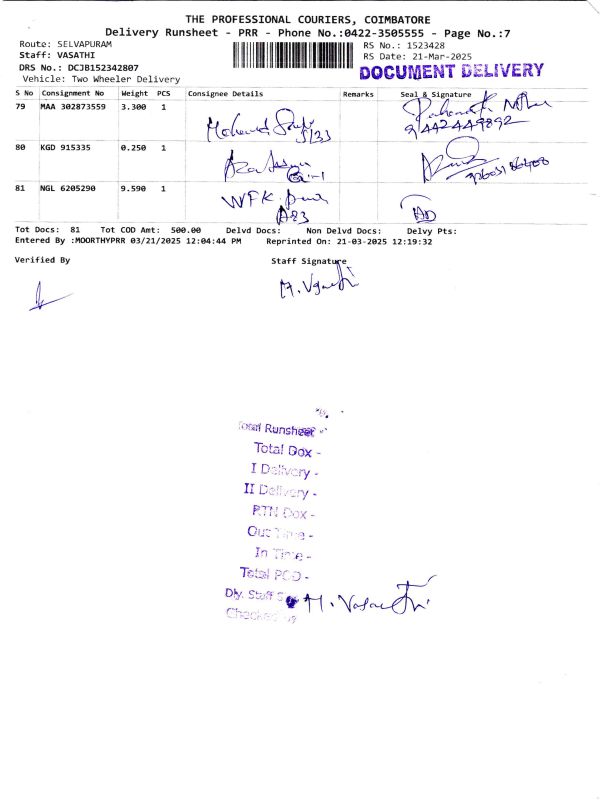 THE PROFESSIONAL COURIERS, COIMBATORE
Delivery Runsheet - PRR - Phone No.:0422-3505555 - Page No.:7
Route: SELVAPURAM
RS No.: 1523428
Staff: VASATHI
RS Date: 21-Mar-2025
DRS No.: DCJB152342807
DOCUMENT DELIVERY
Vehicle: Two Wheeler Delivery
S No Consignment No Weight PCS Consignee Details Remarks Seal & Signature
79 MAA 302873559 3.300 1
9442449892
80 KGD 915335 0.250 1
81 NGL 6205290 9.590 1
WFK
A23
Tot Docs: 81 Tot COD Amt: 500.00 Delvd Docs: Non Delvd Docs: Delvy Pts:
Entered By :MOORTHYPRR 03/21/2025 12:04:44 PM Reprinted On: 21-03-2025 12:19:32
Verified By Staff Signature
Total Runsheet -
Total Dox -
I Delivery -
II Delivery -
RTN Dox -
Out Time -
In Time -
Total POD -
Dly. Staff
Checked by